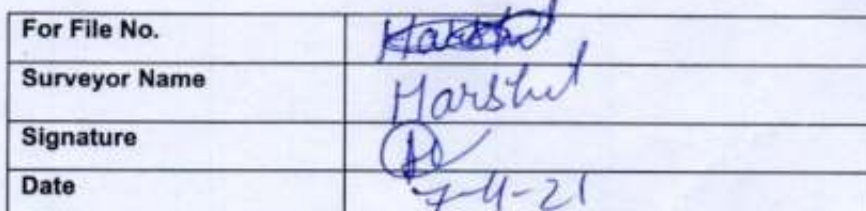 For File No. Harshit
Surveyor Name Harshit
Signature
Date 7-4-21